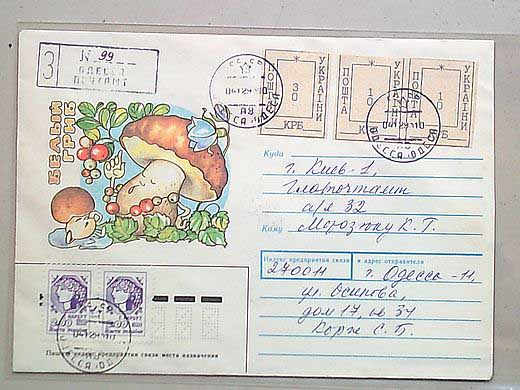 З № 99
ОДЕССА
ПОЧТАМТ
БЕЛЫЙ
ГРИБ
ПОШТА 30 УКРАЇНИ
КРБ
ПОШТА 10 УКРАЇНИ
КРБ
ПОШТА 10 УКРАЇНИ
КРБ
ОДЕССА ОДЕСА
Куда г. Киев-1,
Главпочтамт
а/я 32
Кому Морозюку К. Т.
Индекс предприятия связи и адрес отправителя
270011 г. Одесса-11,
ул. Осипова,
дом 17, кв 37
Корж С. П.
Пишите индекс предприятия связи места назначения